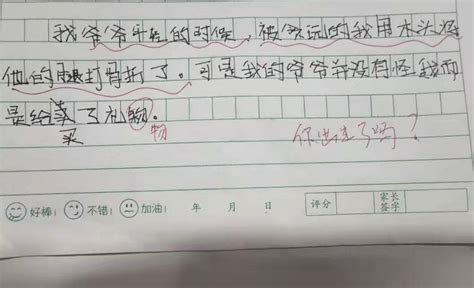 我爷爷年轻的时候,被令远的我用木头怪
他的腿打骨折了。可是我的爷爷并没有怪我而
是给卖了礼物。
买 物 你出生了吗?
好棒! 不错! 加油! 年 月 日 评分 家长签字